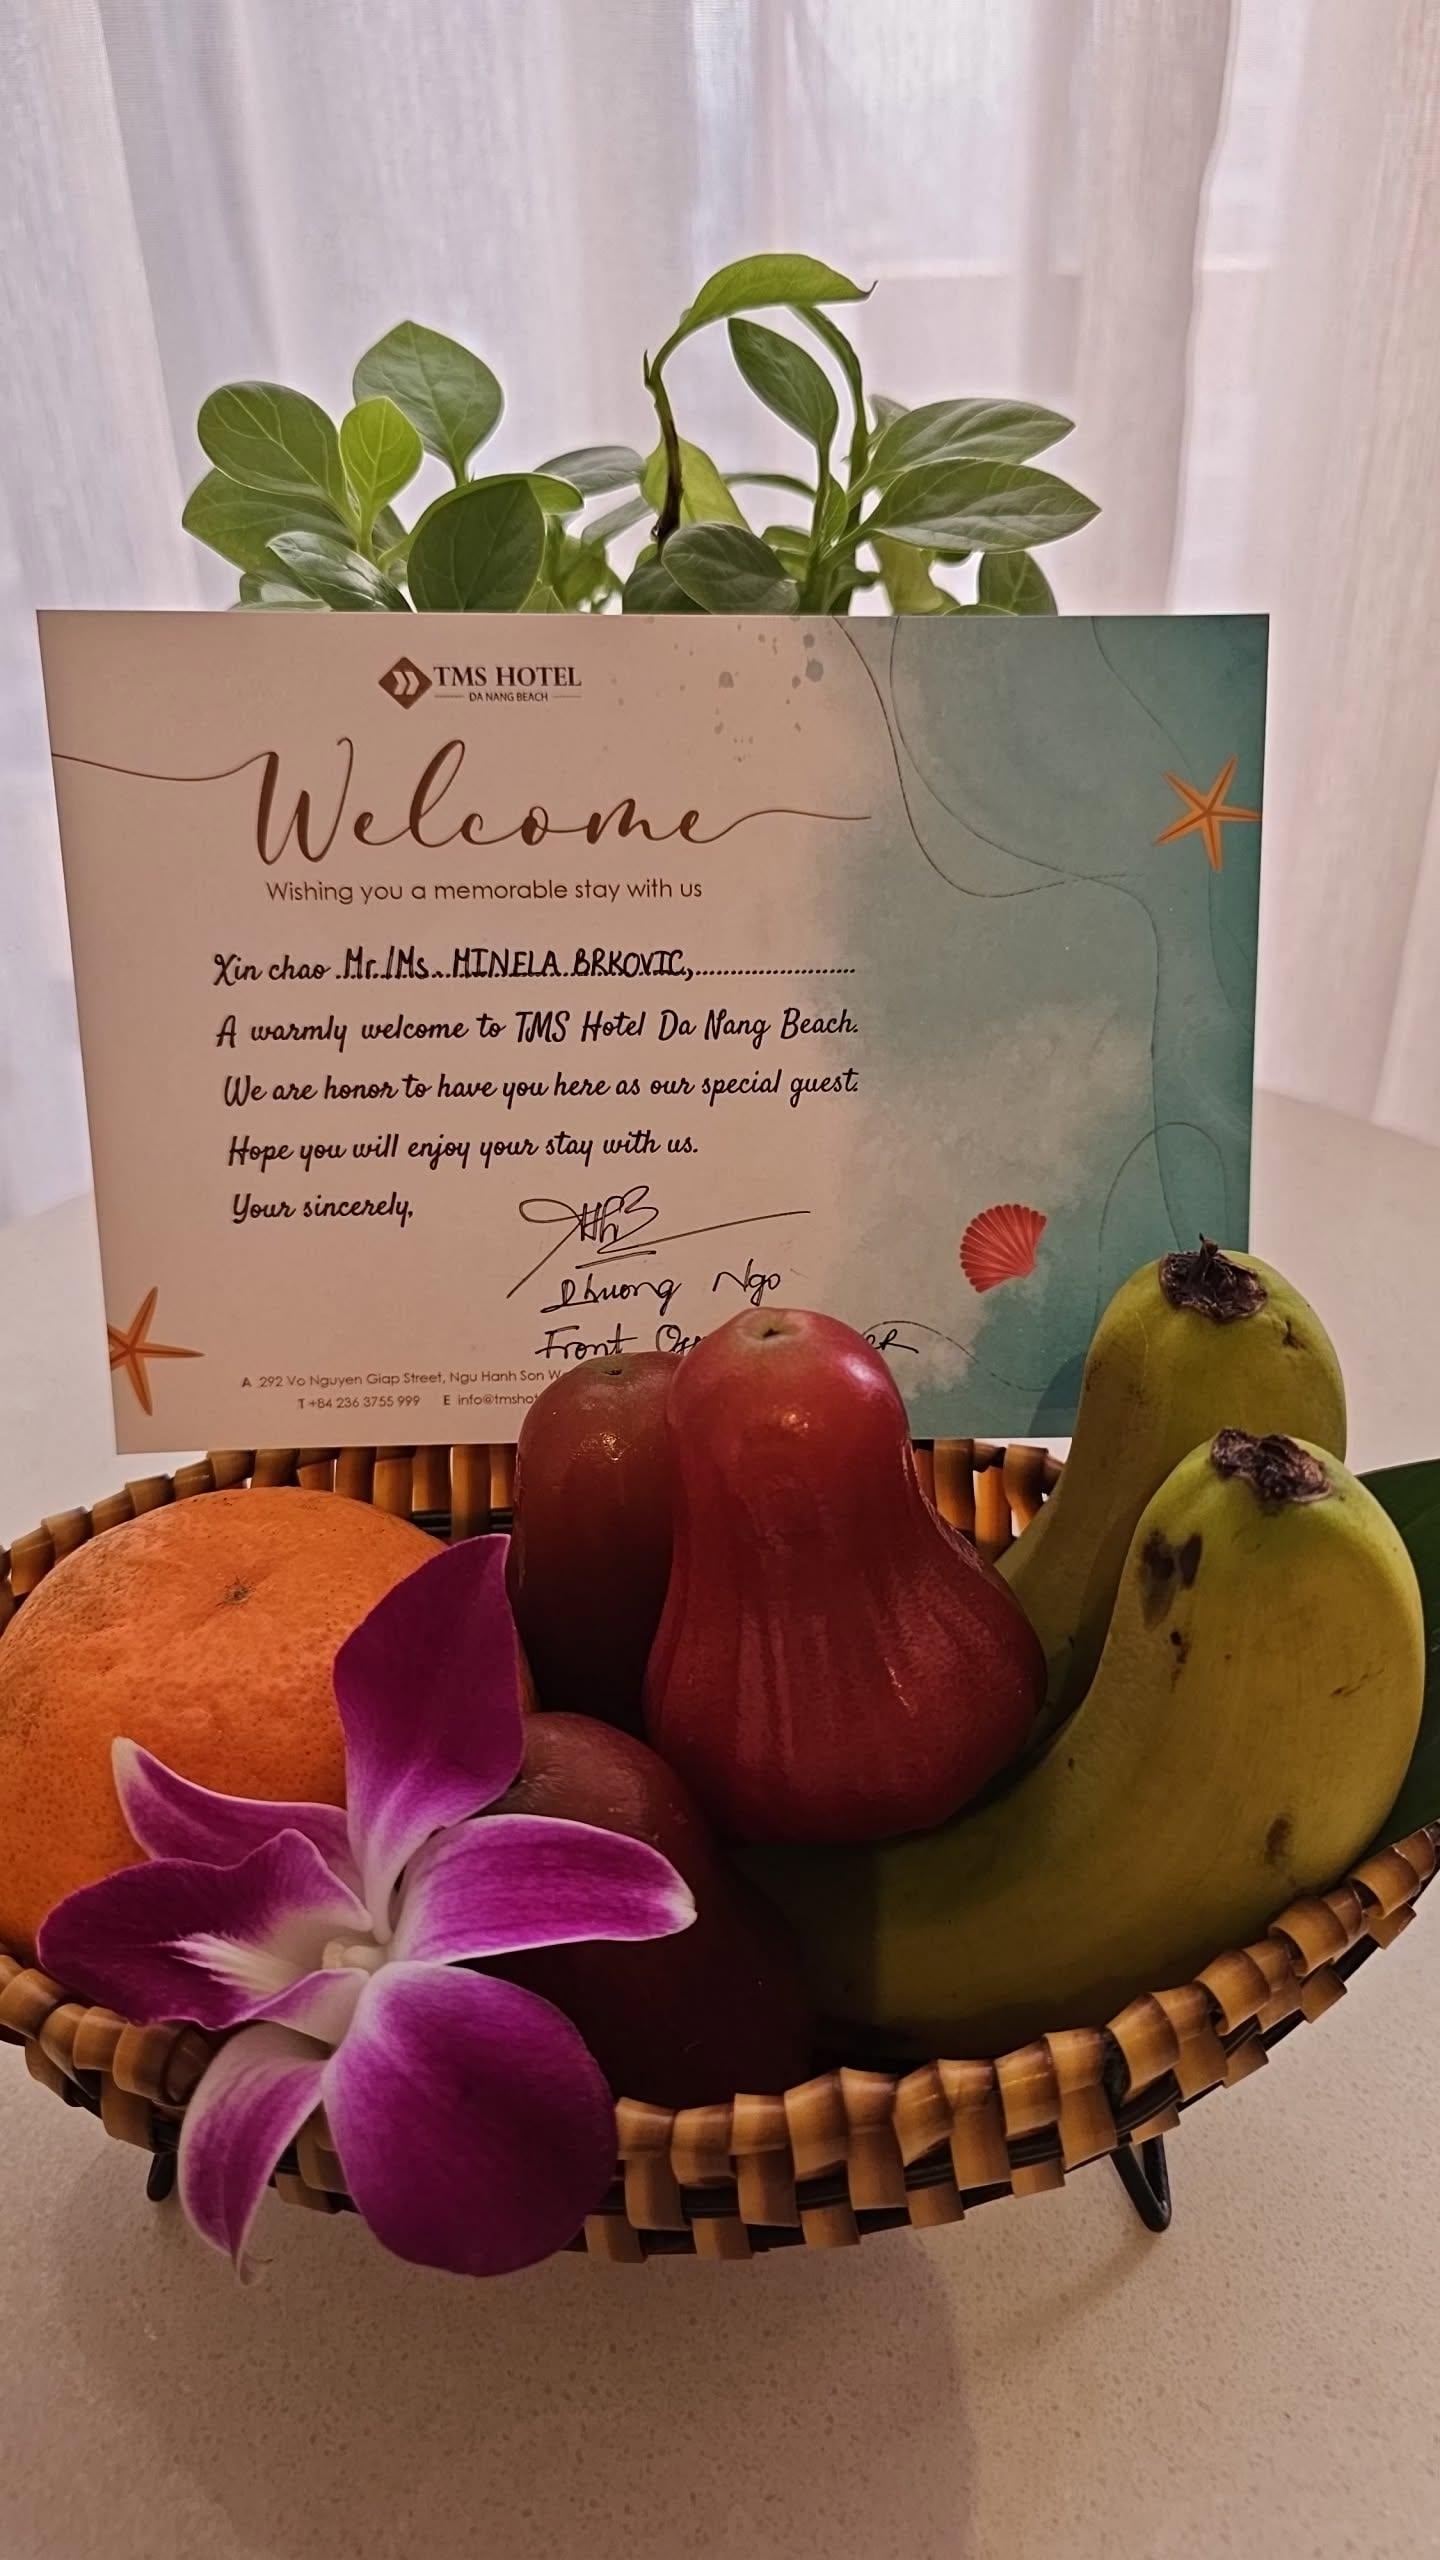 TMS HOTEL
DA NANG BEACH
Welcome
Wishing you a memorable stay with us
Xin chao Mr./Ms. MINELA BRKOVIC,
A warmly welcome to TMS Hotel Da Nang Beach.
We are honor to have you here as our special guest.
Hope you will enjoy your stay with us.
Your sincerely,
Phuong Ngo
Front
A 292 Vo Nguyen Giap Street, Ngu Hanh Son
T +84 236 3755 999 E